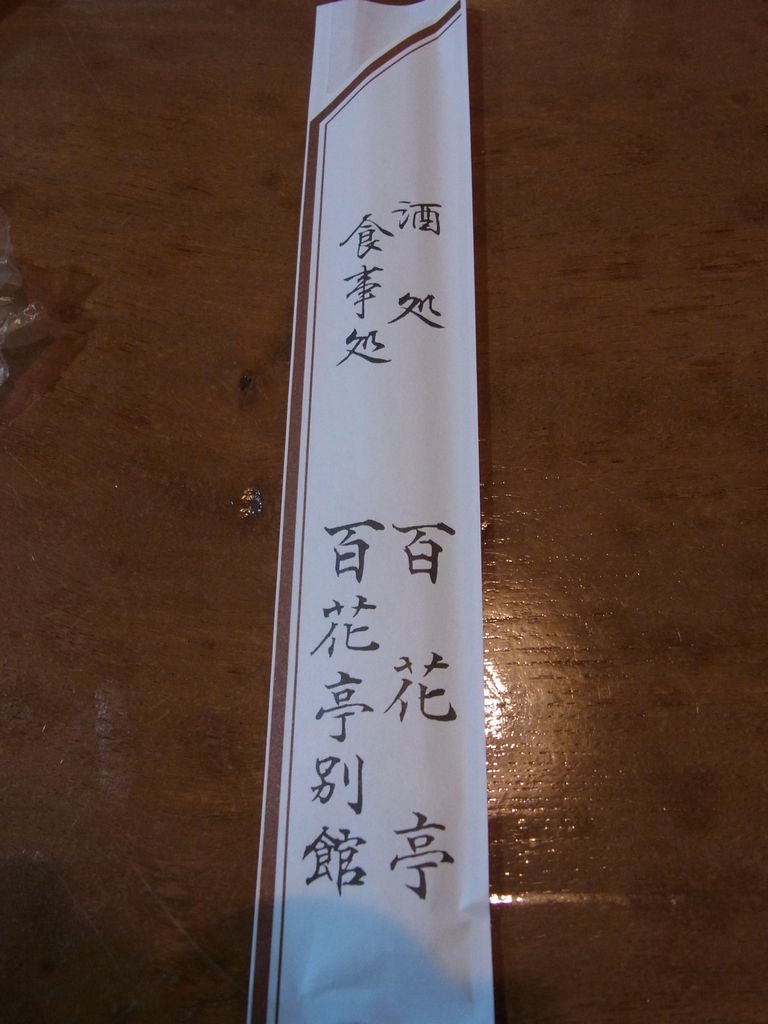 酒処 百花亭
食事処 百花亭別館